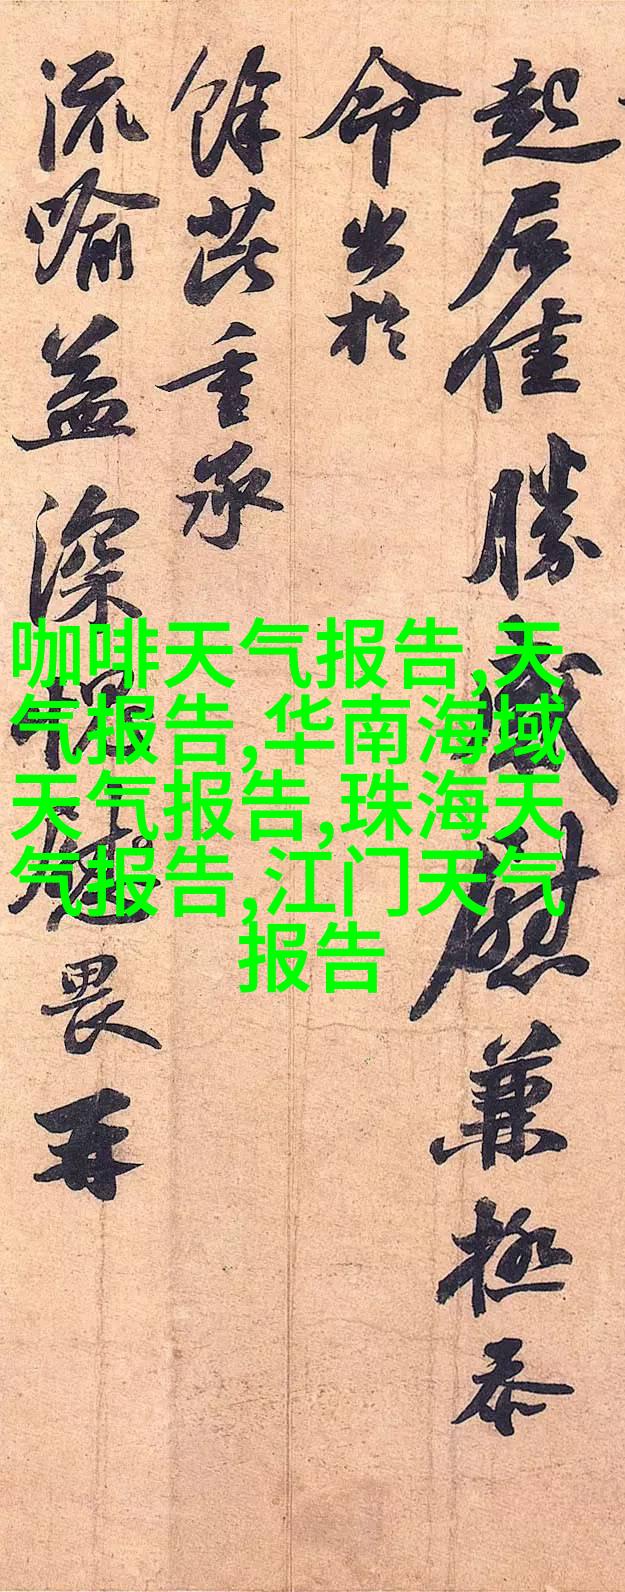 起居佳勝感慰兼極忝
命出於
餘芘重承
流喻益深畏再
咖啡天气报告,天
气报告,华南海域
天气报告,珠海天
气报告,江门天气
报告